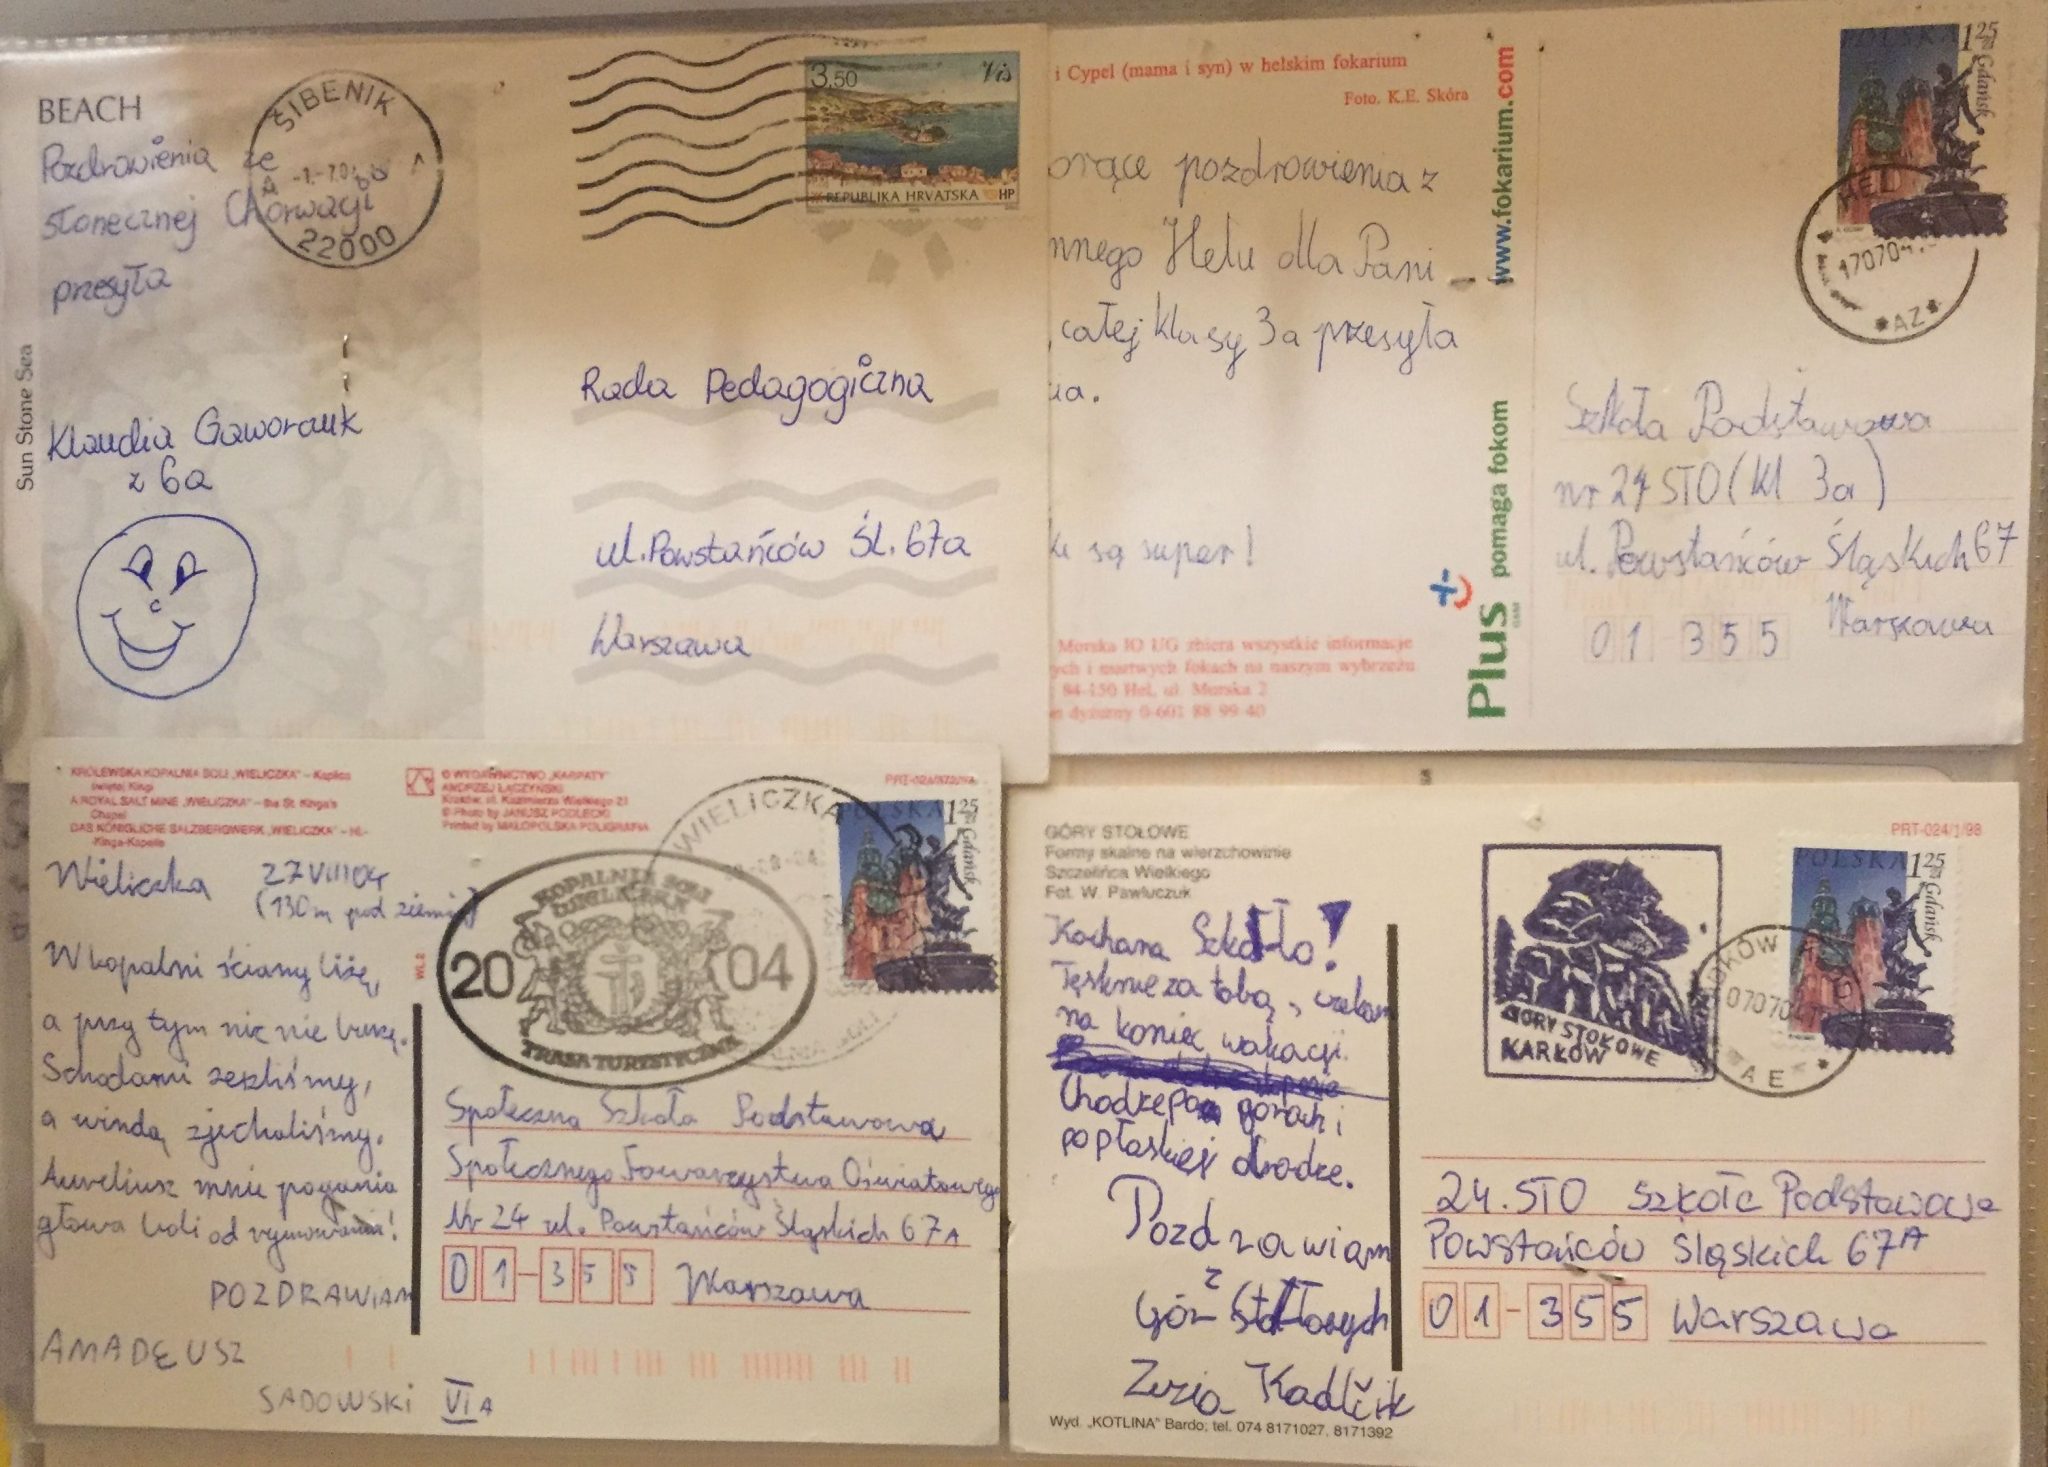 BEACH
Pozdrowienia ze
słonecznej Chorwacji
przesyła
Klaudia Gaworczuk
z 6a
Sun Stone Sea
ŠIBENIK
22000
3,50 Vis
REPUBLIKA HRVATSKA HP
Rada Pedagogiczna
ul. Powstańców Śl. 67a
Warszawa
i Cypel (mama i syn) w helskim fokarium
Foto. K.E. Skóra
orące pozdrowienia z
nnego Helu dla Pani
całej klasy 3a przesyła
ia.
są super!
Morska IO UG zbiera wszystkie informacje
ych i martwych fokach na naszym wybrzeżu
84-150 Hel, ul. Morska 2
dyżurny 0-601 88 99 40
www.fokarium.com
Plus pomaga fokom
GSM
POLSKA 1,25 zł
Gdańsk
HEL
170704
*AZ*
Szkoła Podstawowa
nr 24 STO (kl 3a)
ul. Powstańców Śląskich 67
01 355 Warszawa
KRÓLEWSKA KOPALNIA SOLI „WIELICZKA" – Kaplica
świętej Kingi
A ROYAL SALT MINE „WIELICZKA" – the St. Kinga's
Chapel
DAS KÖNIGLICHE SALZBERGWERK „WIELICZKA" – Hl.-
Kinga-Kapelle
© WYDAWNICTWO „KARPATY"
ANDRZEJ ŁĄCZYŃSKI
Kraków, ul. Kazimierza Wielkiego 21
© Photo by JANUSZ PODLECKI
Printed by MAŁOPOLSKA POLIGRAFIA
WL 2
Wieliczka 27 VIII 04
(130 m pod ziemią)
W kopalni ściany liżę,
a przy tym nic nie
Schodami zeszliśmy,
a windą zjechaliśmy.
Aureliusz mnie pogania
głowa boli od rymowania!
POZDRAWIAM
AMADEUSZ
SADOWSKI VI A
WIELICZKA
KOPALNIA SOLI
WIELICZKA
2004
TRASA TURYSTYCZNA
POLSKA 1,25 zł
Gdańsk
Społeczna Szkoła Podstawowa
Społecznego Towarzystwa Oświatowego
Nr 24 ul. Powstańców Śląskich 67A
01-355 Warszawa
GÓRY STOŁOWE
Formy skalne na wierzchowinie
Szczelińca Wielkiego
Fot. W. Pawluczuk
PRT-024/1/98
Kochana Szkoło!
Tęsknię za tobą, czekam
na koniec wakacji.
Chodzę po górach i
po płaskiej drodze.
Pozdrawiam
z
Gór Stołowych
Zuzia Kadlčik
Wyd. „KOTLINA" Bardo; tel. 074 8171027, 8171392
GÓRY STOŁOWE
KARŁÓW
070704
AE *
POLSKA 1,25 zł
Gdańsk
24. STO Szkoła Podstawowa
Powstańców Śląskich 67A
01-355 Warszawa